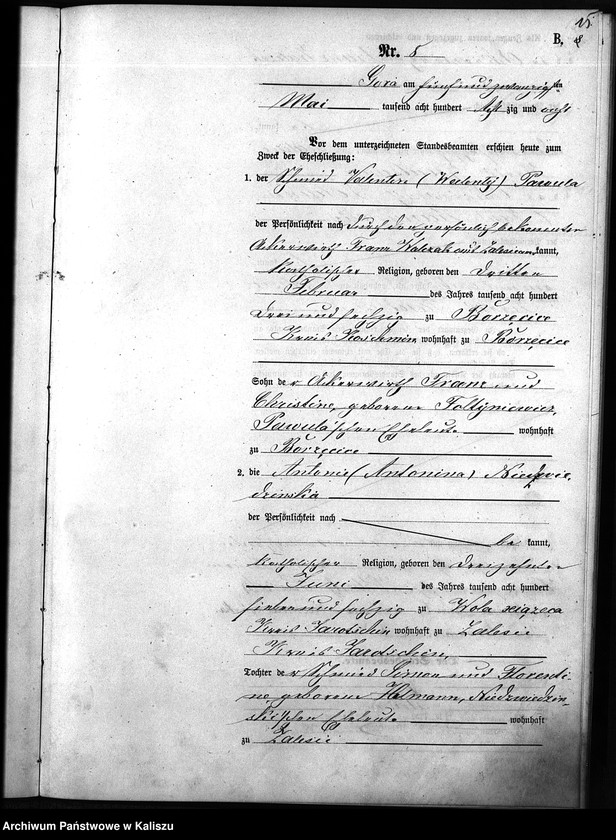 B.
Nr. 5
Gora am fünfundzwanzigsten
Mai tausend acht hundert acht zig und acht
Vor dem unterzeichneten Standesbeamten erschien heute zum
Zweck der Eheschließung:
1. der Schmied Valentin (Walenty) Pawula
der Persönlichkeit nach durch den persönlich bekannten
Ackerwirth Franz Walczak aus Zalesie kannt,
katholischer Religion, geboren den dritten
Februar des Jahres tausend acht hundert
drei und sechzig zu Borzęcice
Kreis Koschmin, wohnhaft zu Borzęcice
Sohn der Ackerwirth Franz und
Christine, geborene Foltyniewicz,
Pawula'schen Eheleute wohnhaft
zu Borzęcice
2. die Antonie (Antonina) Niedzwie
dzinska
der Persönlichkeit nach
be kannt,
katholischer Religion, geboren den dreizehnten
Juni des Jahres tausend acht hundert
sieben und sechzig zu Wola książęca
Kreis Jarotschin wohnhaft zu Zalesie
Kreis Jarotschin,
Tochter der Schmied Simon und Florenti
ne geborene Halmann, Niedzwiedzin
skischen Eheleute wohnhaft
zu Zalesie
Archiwum Państwowe w Kaliszu